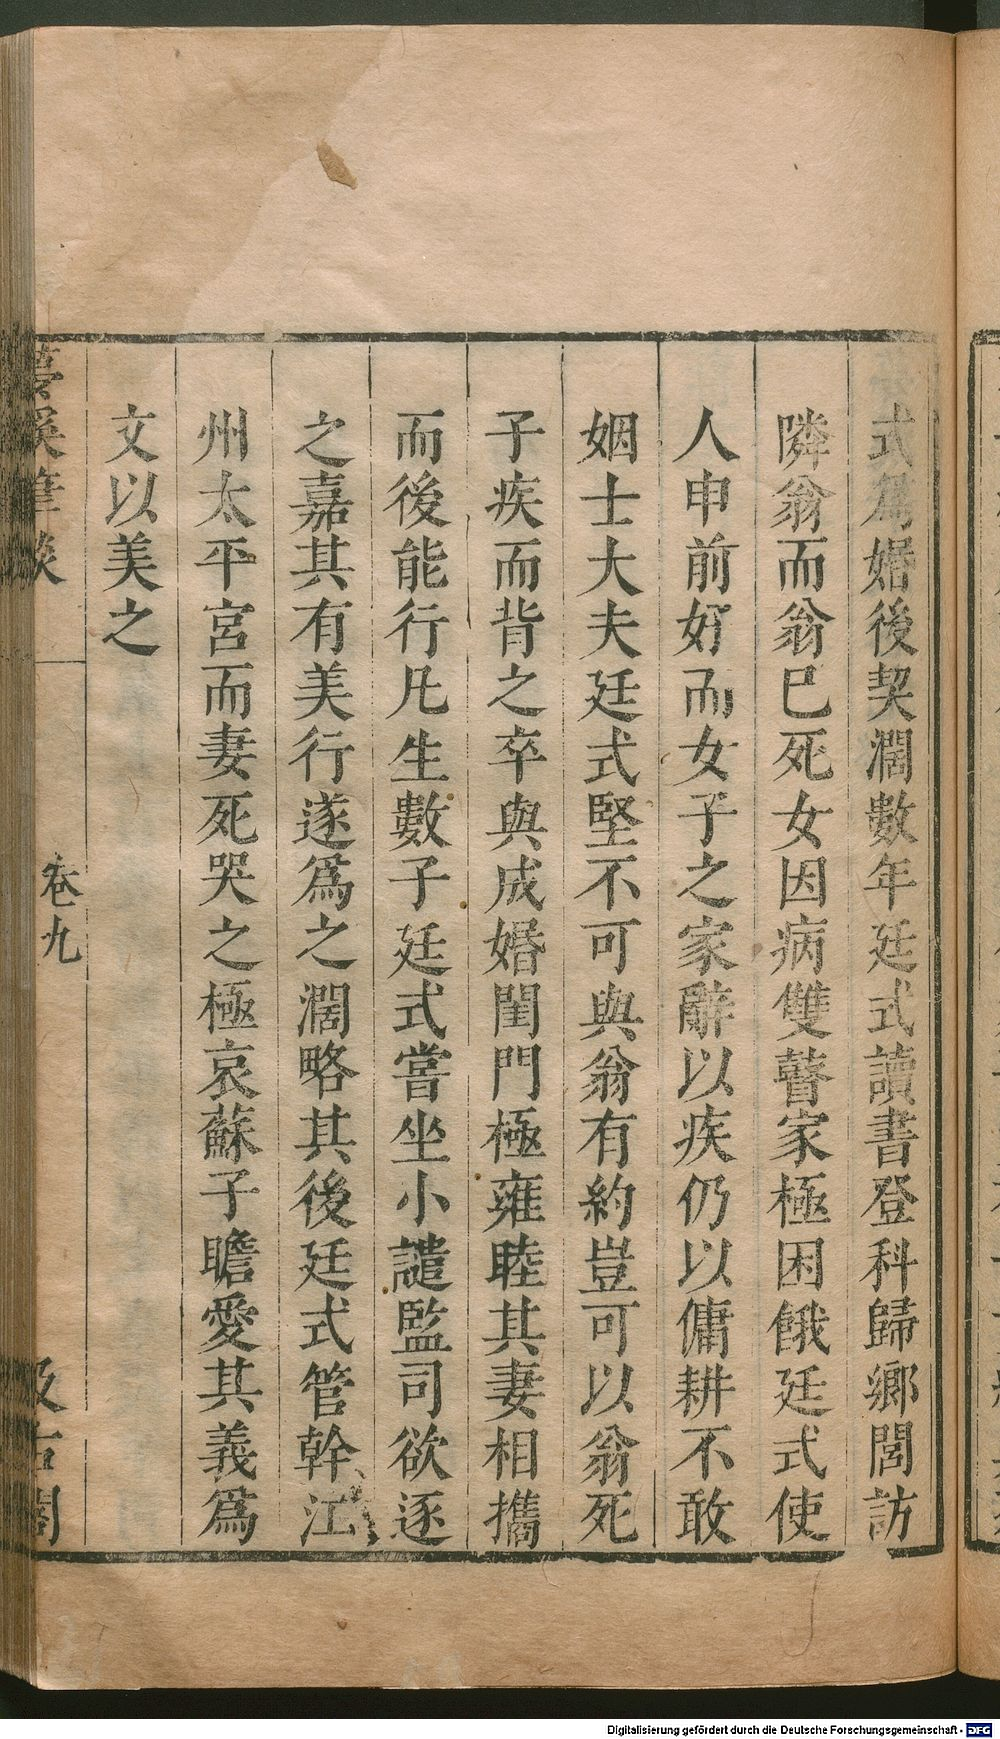 式爲婚後契濶數年廷式讀書登科歸鄉閭訪
隣翁而翁已死女因病雙瞽家極困餓廷式使
人申前好而女子之家辭以疾仍以傭耕不敢
姻士大夫廷式堅不可與翁有約豈可以翁死
子疾而背之卒與成婚閨門極雍睦其妻相攜
而後能行凡生數子廷式嘗坐小譴監司欲逐
之嘉其有美行遂爲之濶略其後廷式管幹江
州太平宮而妻死哭之極哀蘇子瞻愛其義爲
文以美之
夢溪筆談
卷九
汲古閣
Digitalisierung gefördert durch die Deutsche Forschungsgemeinschaft - DFG